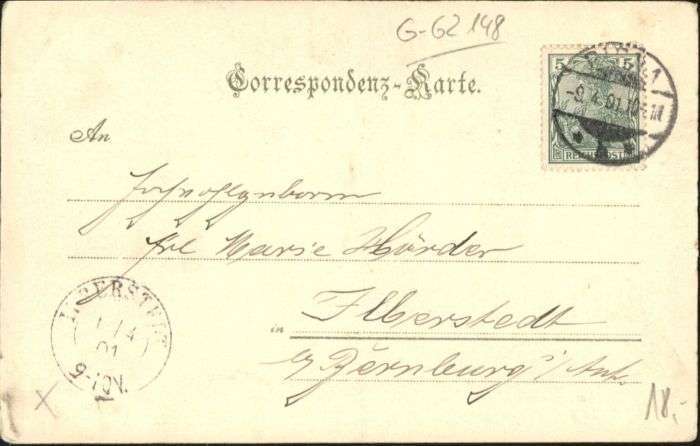 G-G2 148
Correspondenz-Karte.
5 5
REICHSPOST
-9.4.01.10
An
Hochwohlgeborn
Frl Marie Hörder
in Ilberstedt
b/ Bernburg i/ Anh.
ILBERSTEDT
1/4
01
18,-